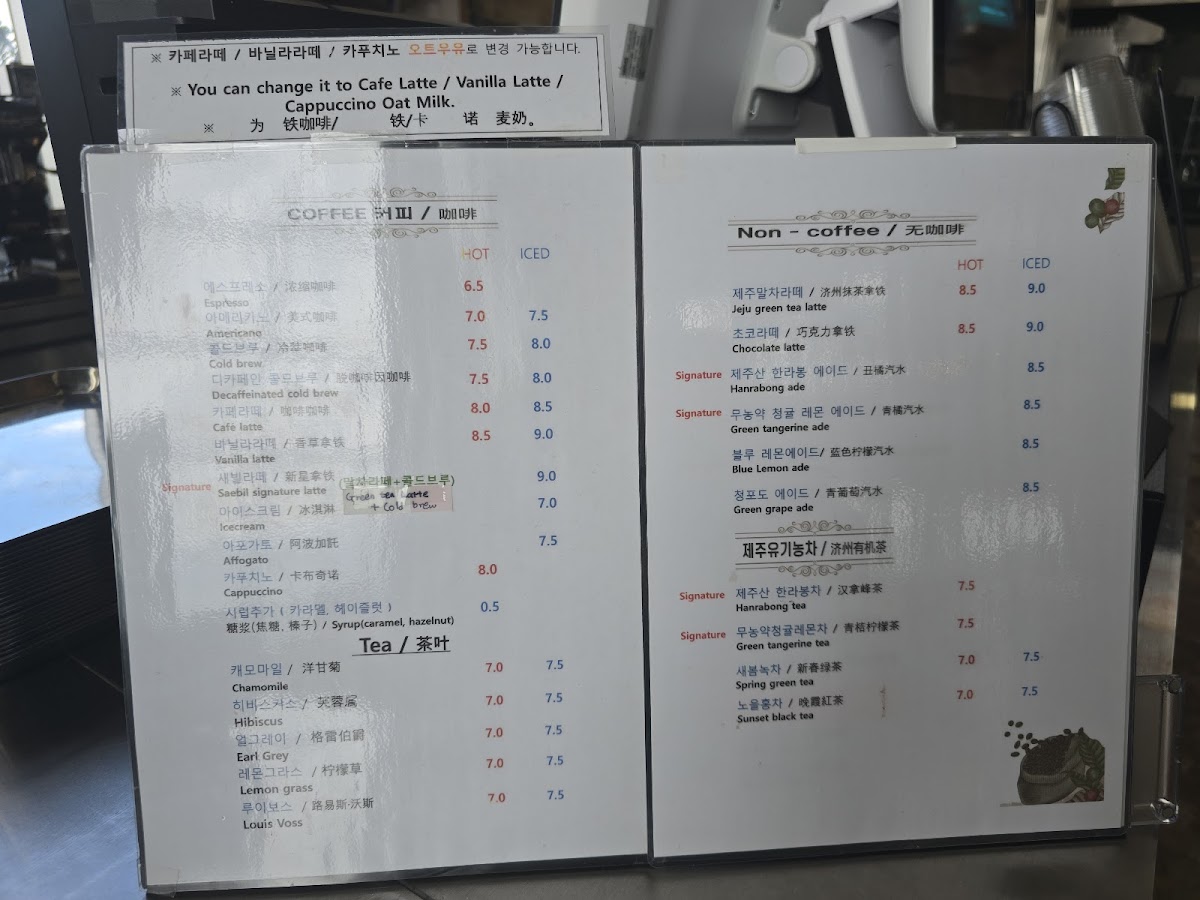 ※ 카페라떼 / 바닐라라떼 / 카푸치노 오트우유로 변경 가능합니다.
※ You can change it to Cafe Latte / Vanilla Latte /
Cappuccino Oat Milk.
※ 为 铁咖啡/ 铁/卡 诺 麦奶。
COFFEE 커피 / 咖啡
HOT ICED
에스프레소 / 浓缩咖啡 6.5
Espresso
아메리카노 / 美式咖啡 7.0 7.5
Americano
콜드브루 / 冷萃咖啡 7.5 8.0
Cold brew
디카페인 콜드브루 / 脱咖啡因咖啡 7.5 8.0
Decaffeinated cold brew
카페라떼 / 咖啡咖啡 8.0 8.5
Café latte
바닐라라떼 / 香草拿铁 8.5 9.0
Vanilla latte
Signature 새빌라떼 / 新星拿铁 (말차라떼+콜드브루) 9.0
Saebil signature latte Green tea Latte + Cold brew
아이스크림 / 冰淇淋 7.0
Icecream
아포가토 / 阿波加託 7.5
Affogato
카푸치노 / 卡布奇诺 8.0
Cappuccino
시럽추가 ( 카라멜, 헤이즐럿 ) 0.5
糖浆(焦糖、榛子) / Syrup(caramel, hazelnut)
Tea / 茶叶
캐모마일 / 洋甘菊 7.0 7.5
Chamomile
히비스커스 / 芙蓉属 7.0 7.5
Hibiscus
얼그레이 / 格雷伯爵 7.0 7.5
Earl Grey
레몬그라스 / 柠檬草 7.0 7.5
Lemon grass
루이보스 / 路易斯·沃斯 7.0 7.5
Louis Voss
Non - coffee / 无咖啡
HOT ICED
제주말차라떼 / 济州抹茶拿铁 8.5 9.0
Jeju green tea latte
초코라떼 / 巧克力拿铁 8.5 9.0
Chocolate latte
Signature 제주산 한라봉 에이드 / 丑橘汽水 8.5
Hanrabong ade
Signature 무농약 청귤 레몬 에이드 / 青橘汽水 8.5
Green tangerine ade
블루 레몬에이드/ 蓝色柠檬汽水 8.5
Blue Lemon ade
청포도 에이드 / 青葡萄汽水 8.5
Green grape ade
제주유기농차 / 济州有机茶
Signature 제주산 한라봉차 / 汉拿峰茶 7.5
Hanrabong tea
Signature 무농약청귤레몬차 / 青桔柠檬茶 7.5
Green tangerine tea
새봄녹차 / 新春绿茶 7.0 7.5
Spring green tea
노을홍차 / 晚霞紅茶 7.0 7.5
Sunset black tea